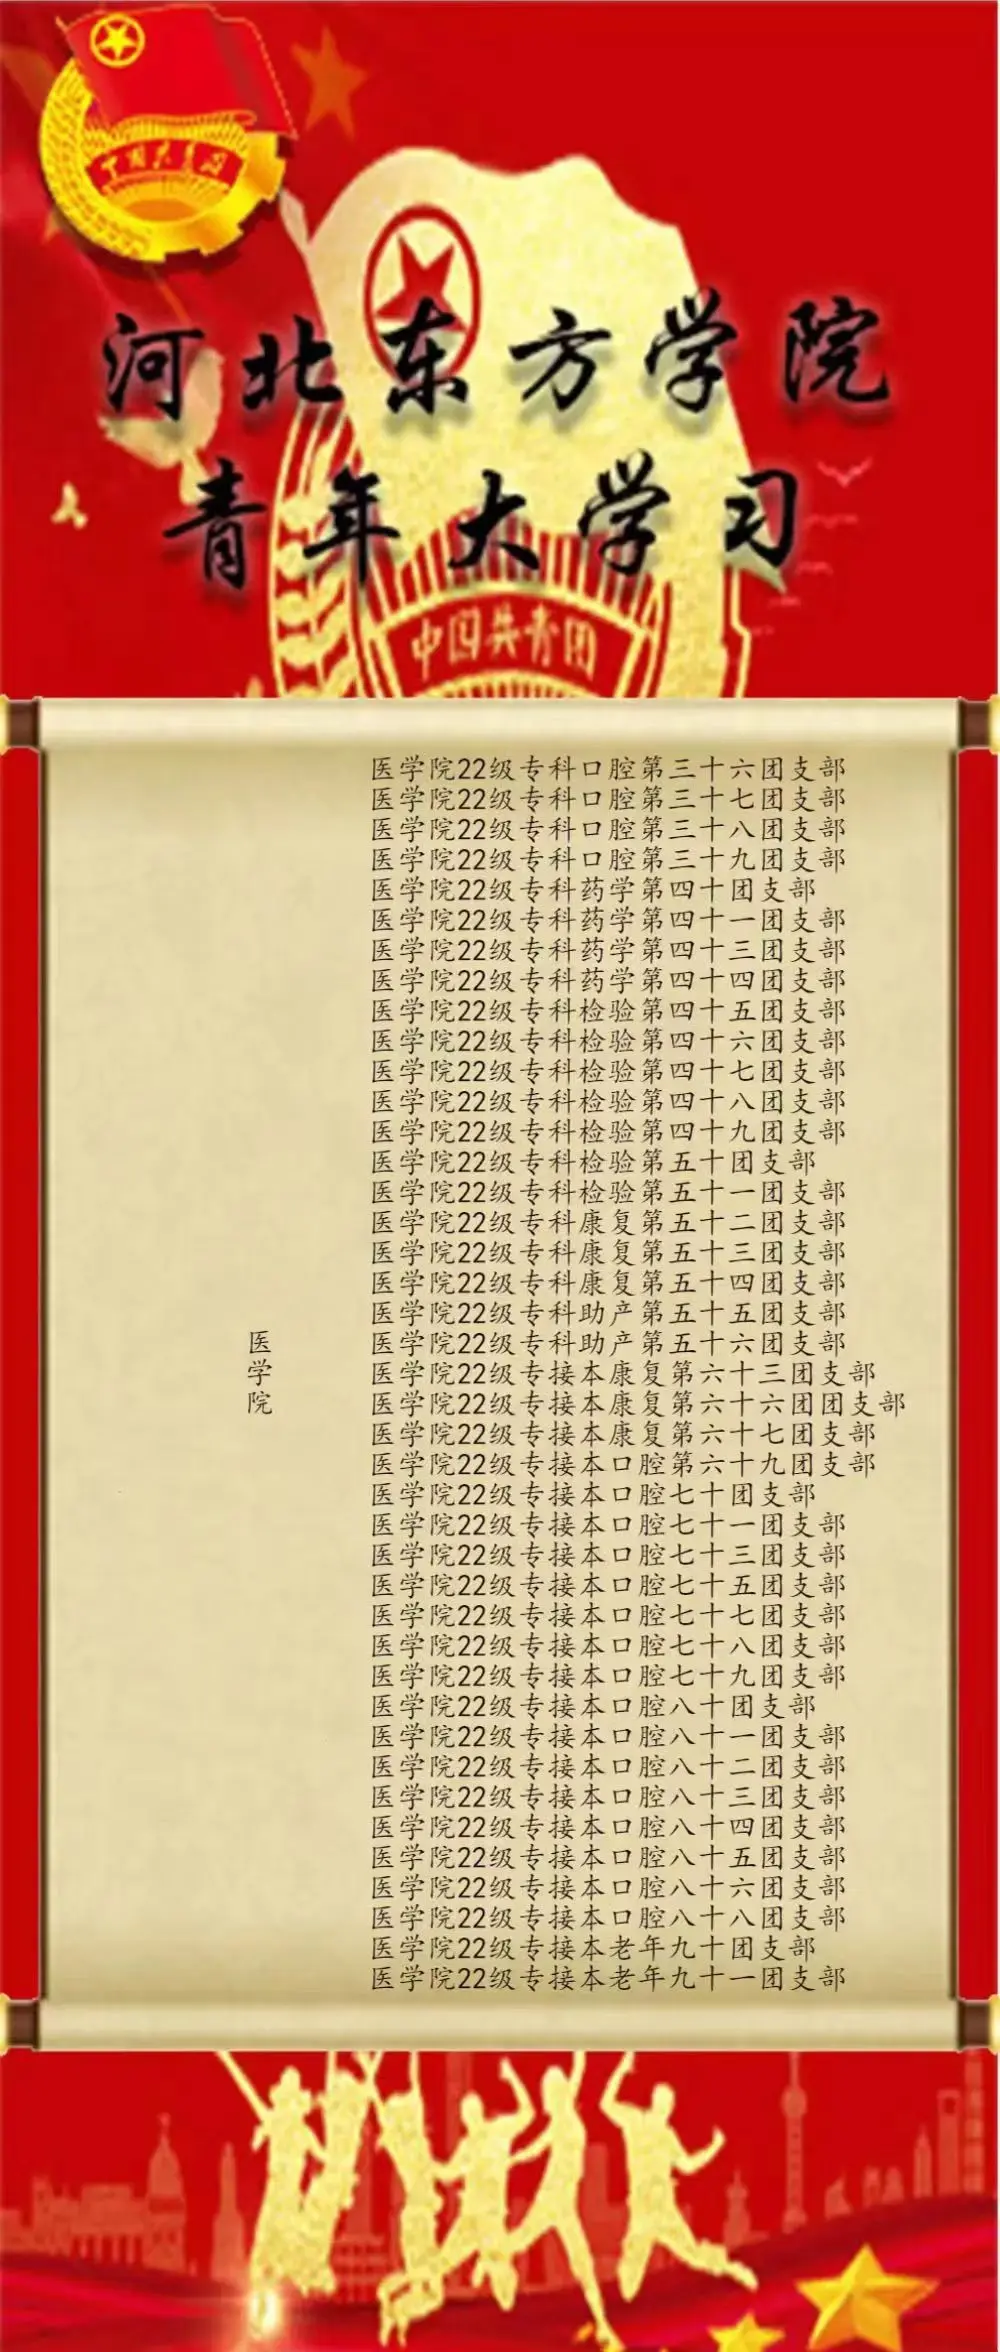 中国共青团
河北东方学院
青年大学习
中国共青团
医学院22级专科口腔第三十六团支部
医学院22级专科口腔第三十七团支部
医学院22级专科口腔第三十八团支部
医学院22级专科口腔第三十九团支部
医学院22级专科药学第四十团支部
医学院22级专科药学第四十一团支部
医学院22级专科药学第四十三团支部
医学院22级专科药学第四十四团支部
医学院22级专科检验第四十五团支部
医学院22级专科检验第四十六团支部
医学院22级专科检验第四十七团支部
医学院22级专科检验第四十八团支部
医学院22级专科检验第四十九团支部
医学院22级专科检验第五十团支部
医学院22级专科检验第五十一团支部
医学院22级专科康复第五十二团支部
医学院22级专科康复第五十三团支部
医学院22级专科康复第五十四团支部
医学院22级专科助产第五十五团支部
医学院22级专科助产第五十六团支部
医学院22级专接本康复第六十三团支部
医学院22级专接本康复第六十六团团支部
医学院22级专接本康复第六十七团支部
医学院22级专接本口腔第六十九团支部
医学院22级专接本口腔七十团支部
医学院22级专接本口腔七十一团支部
医学院22级专接本口腔七十三团支部
医学院22级专接本口腔七十五团支部
医学院22级专接本口腔七十七团支部
医学院22级专接本口腔七十八团支部
医学院22级专接本口腔七十九团支部
医学院22级专接本口腔八十团支部
医学院22级专接本口腔八十一团支部
医学院22级专接本口腔八十二团支部
医学院22级专接本口腔八十三团支部
医学院22级专接本口腔八十四团支部
医学院22级专接本口腔八十五团支部
医学院22级专接本口腔八十六团支部
医学院22级专接本口腔八十八团支部
医学院22级专接本老年九十团支部
医学院22级专接本老年九十一团支部
医学院